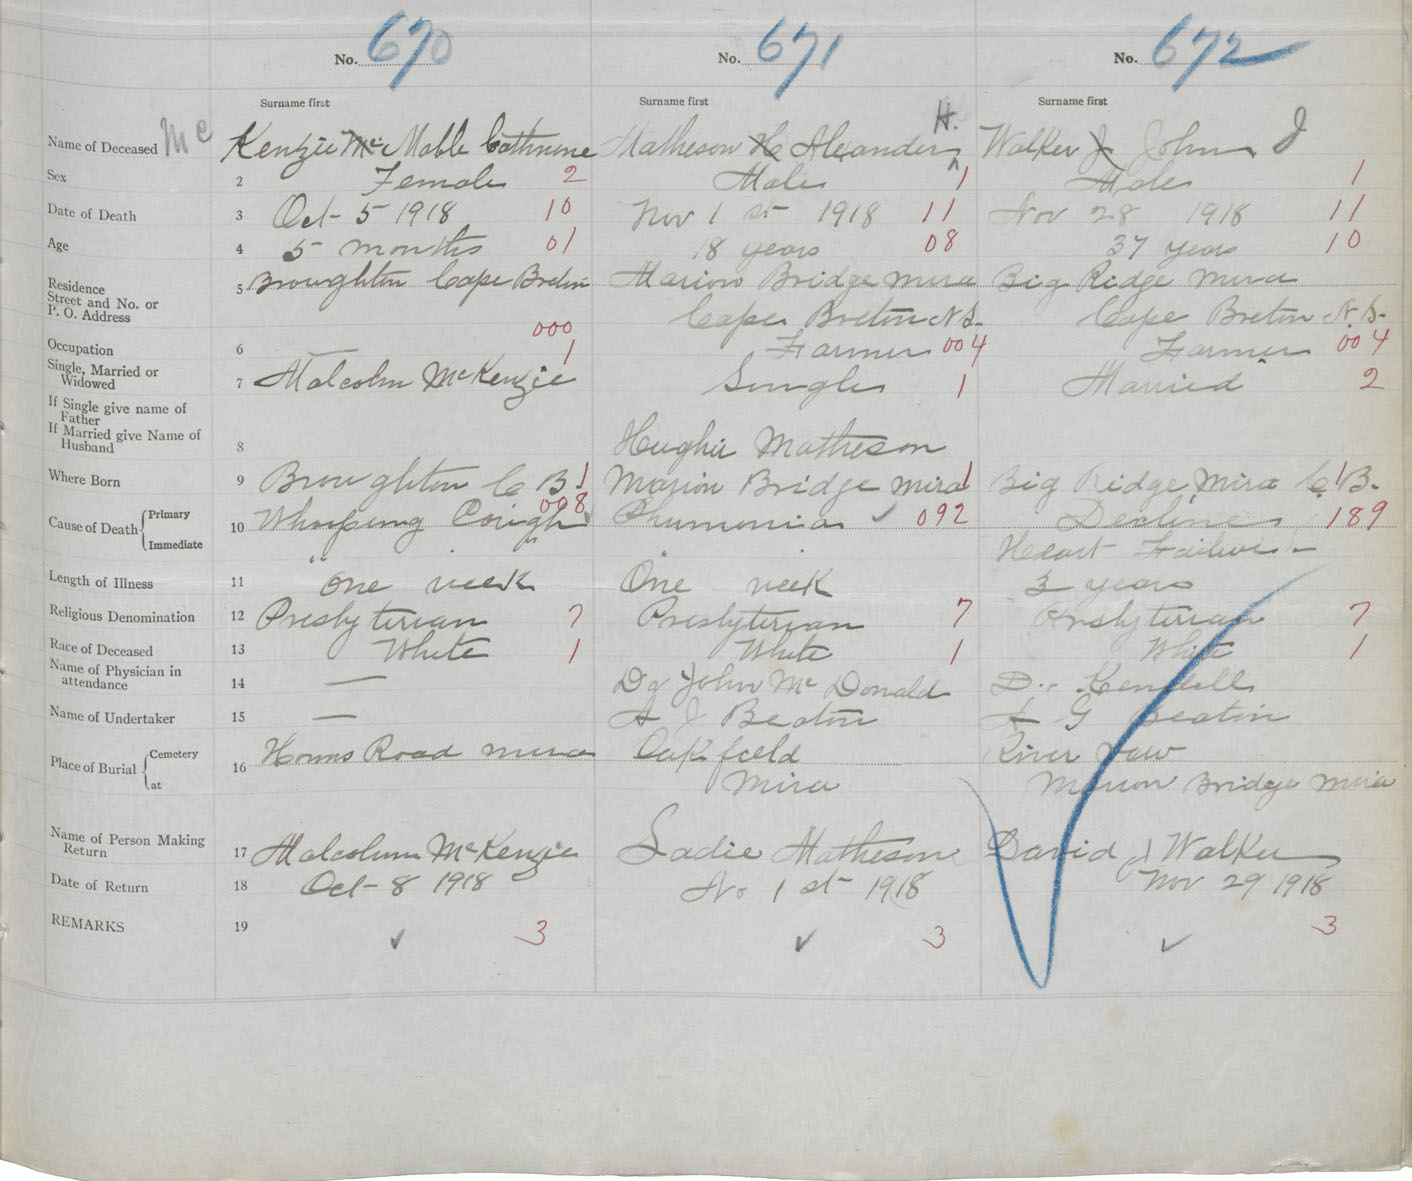 No. 670 No. 671 No. 672
Surname first Surname first Surname first
H.
Name of Deceased Mc Kenzie Mc Mable Cathrine Matheson H Alexander Walker J John J
Sex 2 Female 2 Male 1 Male 1
Date of Death 3 Oct 5 1918 10 Nov 1 st 1918 11 Nov 28 1918 11
Age 4 5 months 01 18 years 08 37 years 10
Residence Street and No. or P. O. Address 5 Broughton Cape Breton Marion Bridge Mira Big Ridge Mira
000 Cape Breton N S. Cape Breton N. S.
Occupation 6 — 1 Farmer 004 Farmer 004
Single, Married or Widowed 7 Malcolm McKenzie Single 1 Married 2
If Single give name of Father
If Married give Name of Husband 8 Hughie Matheson
Where Born 9 Broughton C B. 1 Marion Bridge Mira 1 Big Ridge Mira C B. 1
Cause of Death Primary 10 Whooping Cough 008 Phumonia 092 Decline 189
Immediate " " Heart Failure
Length of Illness 11 one week One week 3 years
Religious Denomination 12 Presbyterian 7 Presbyterian 7 Presbyterian 7
Race of Deceased 13 White 1 White 1 White 1
Name of Physician in attendance 14 — Dr John Mc Donald Dr. Kendell
Name of Undertaker 15 — A J Beaton A G Beaton
Place of Burial Cemetery 16 Horns Road mira Oakfield River View
at Mira Marion Bridge Mira
Name of Person Making Return 17 Malcolum McKenzie Sadie Matheson David J Walker
Date of Return 18 Oct 8 1918 No 1 st 1918 Nov 29 1918
REMARKS 19 3 3 3